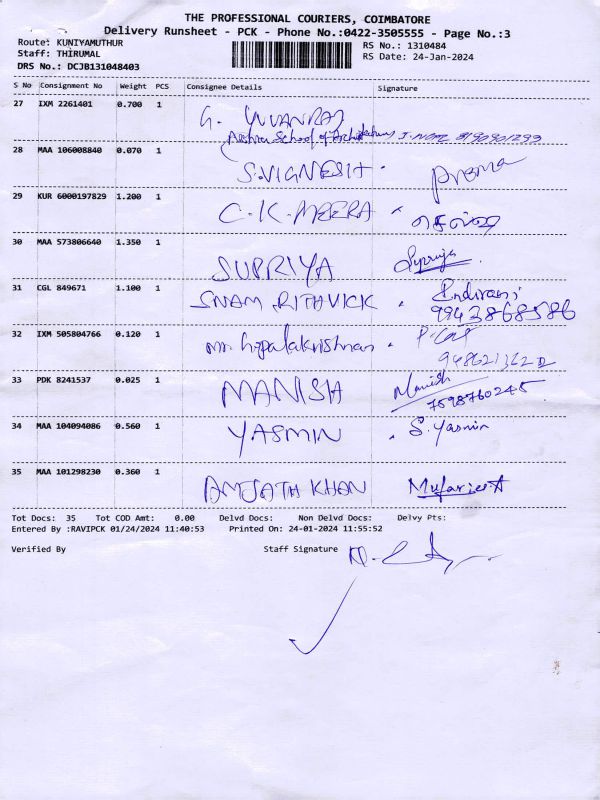 THE PROFESSIONAL COURIERS, COIMBATORE
Delivery Runsheet - PCK - Phone No.:0422-3505555 - Page No.:3
Route: KUNIYAMUTHUR RS No.: 1310484
Staff: THIRUMAL RS Date: 24-Jan-2024
DRS No.: DCJB131048403
S No Consignment No Weight PCS Consignee Details Signature
27 IXM 2261401 0.700 1 G. YUVANRAJ
School of Architecture 8190901299
28 MAA 106008840 0.070 1 S.VIGNESH. Prema
29 KUR 6000197829 1.200 1 C.K.MEERA
30 MAA 573806640 1.350 1 SUPRIYA Supriya.
31 CGL 849671 1.100 1 SNAM RITHVICK Indirani
9943868586
32 IXM 505804766 0.120 1 Mr. hopalakrishnan
33 PDK 8241537 0.025 1 MANISH Manish
7598760245
34 MAA 104094086 0.560 1 YASMIN S. Yasmin
35 MAA 101298230 0.360 1 AMJATH KHAN
Tot Docs: 35 Tot COD Amt: 0.00 Delvd Docs: Non Delvd Docs: Delvy Pts:
Entered By :RAVIPCK 01/24/2024 11:40:53 Printed On: 24-01-2024 11:55:52
Verified By Staff Signature